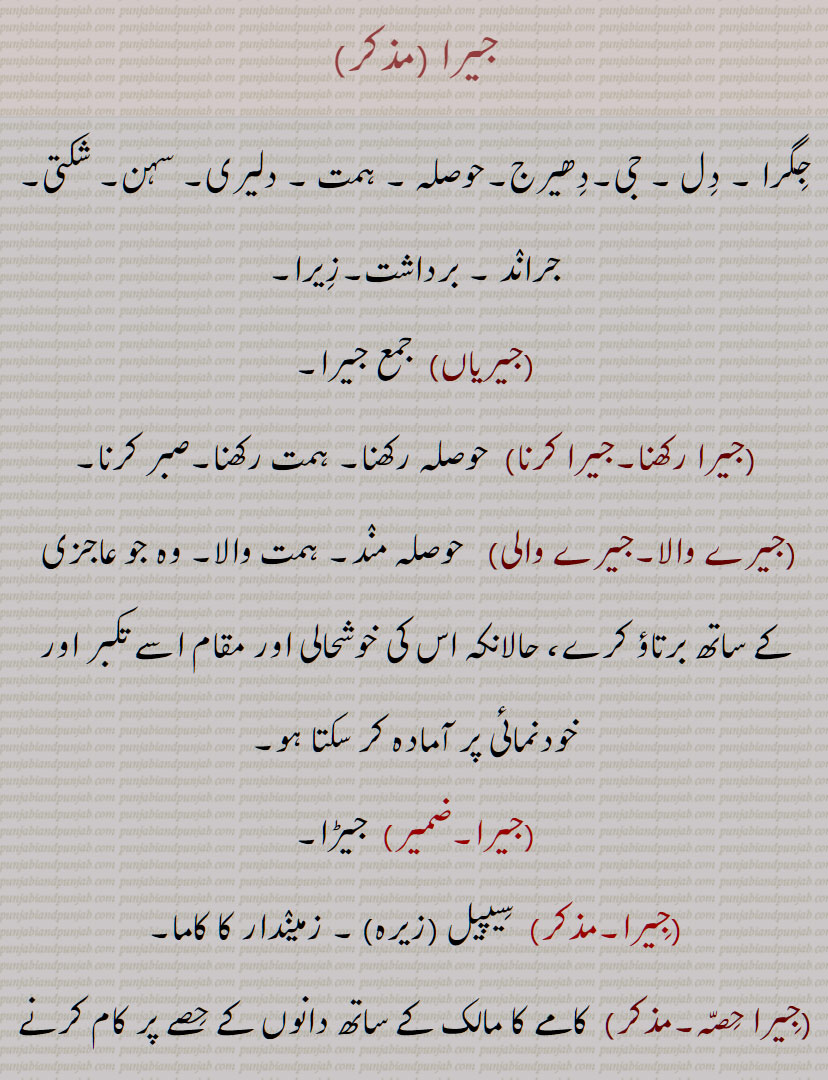 جیرا (مذکر)
جِگرا ۔ دِل ۔ جی۔دِھیرج۔حوصلہ ۔ ہمت ۔ دلیری۔ سہن۔ شکتی۔
جرانْد ۔ برداشت۔زِیرا۔
(جیریاں) جمع جیرا۔
(جیرا رکھنا۔جیرا کرنا) حوصلہ رکھنا۔ ہمت رکھنا۔صبر کرنا۔
(جیرے والا۔جیرے والی) حوصلہ منْد۔ ہمت والا۔ وہ جو عاجزی
کے ساتھ برتاؤ کرے، حالانکہ اس کی خوشحالی اور مقام اسے تکبر اور
خودنمائی پر آمادہ کر سکتا ہو۔
(جیرا۔ضمیر) جیڑا۔
(جِیرا۔مذکر) سِیپیل (زیرہ) ۔ زمینْدار کا کاما۔
(جِیرا حِصّہ۔مذکر) کامے کا مالک کے ساتھ دانوں کے حِصے پر کام کرنے